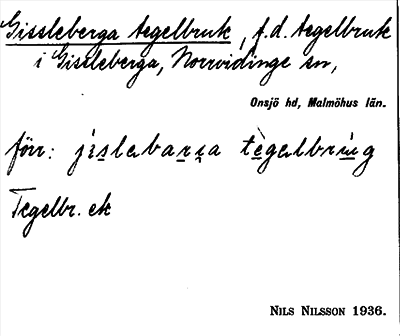 Gissleberga tegelbruk, f.d. tegelbruk
i Gissleberga, Norrvidinge sn,
Onsjö hd, Malmöhus län.
förr:
Tegelbr. ek
NILS NILSSON 1936.